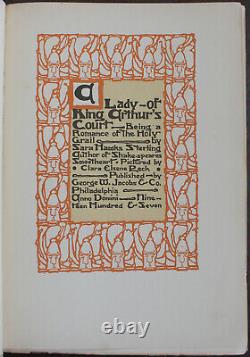 A
Lady-of
King Arthur's
Court Being a
Romance of the Holy
Grail by
Sara Hawks Sterling
Author of Shakespeares
Sweetheart Pictured by
Clara Elsene Peck
Published by
George W. Jacobs & Co.
Philadelphia
Anno Domini Nine-
teen Hundred & Seven